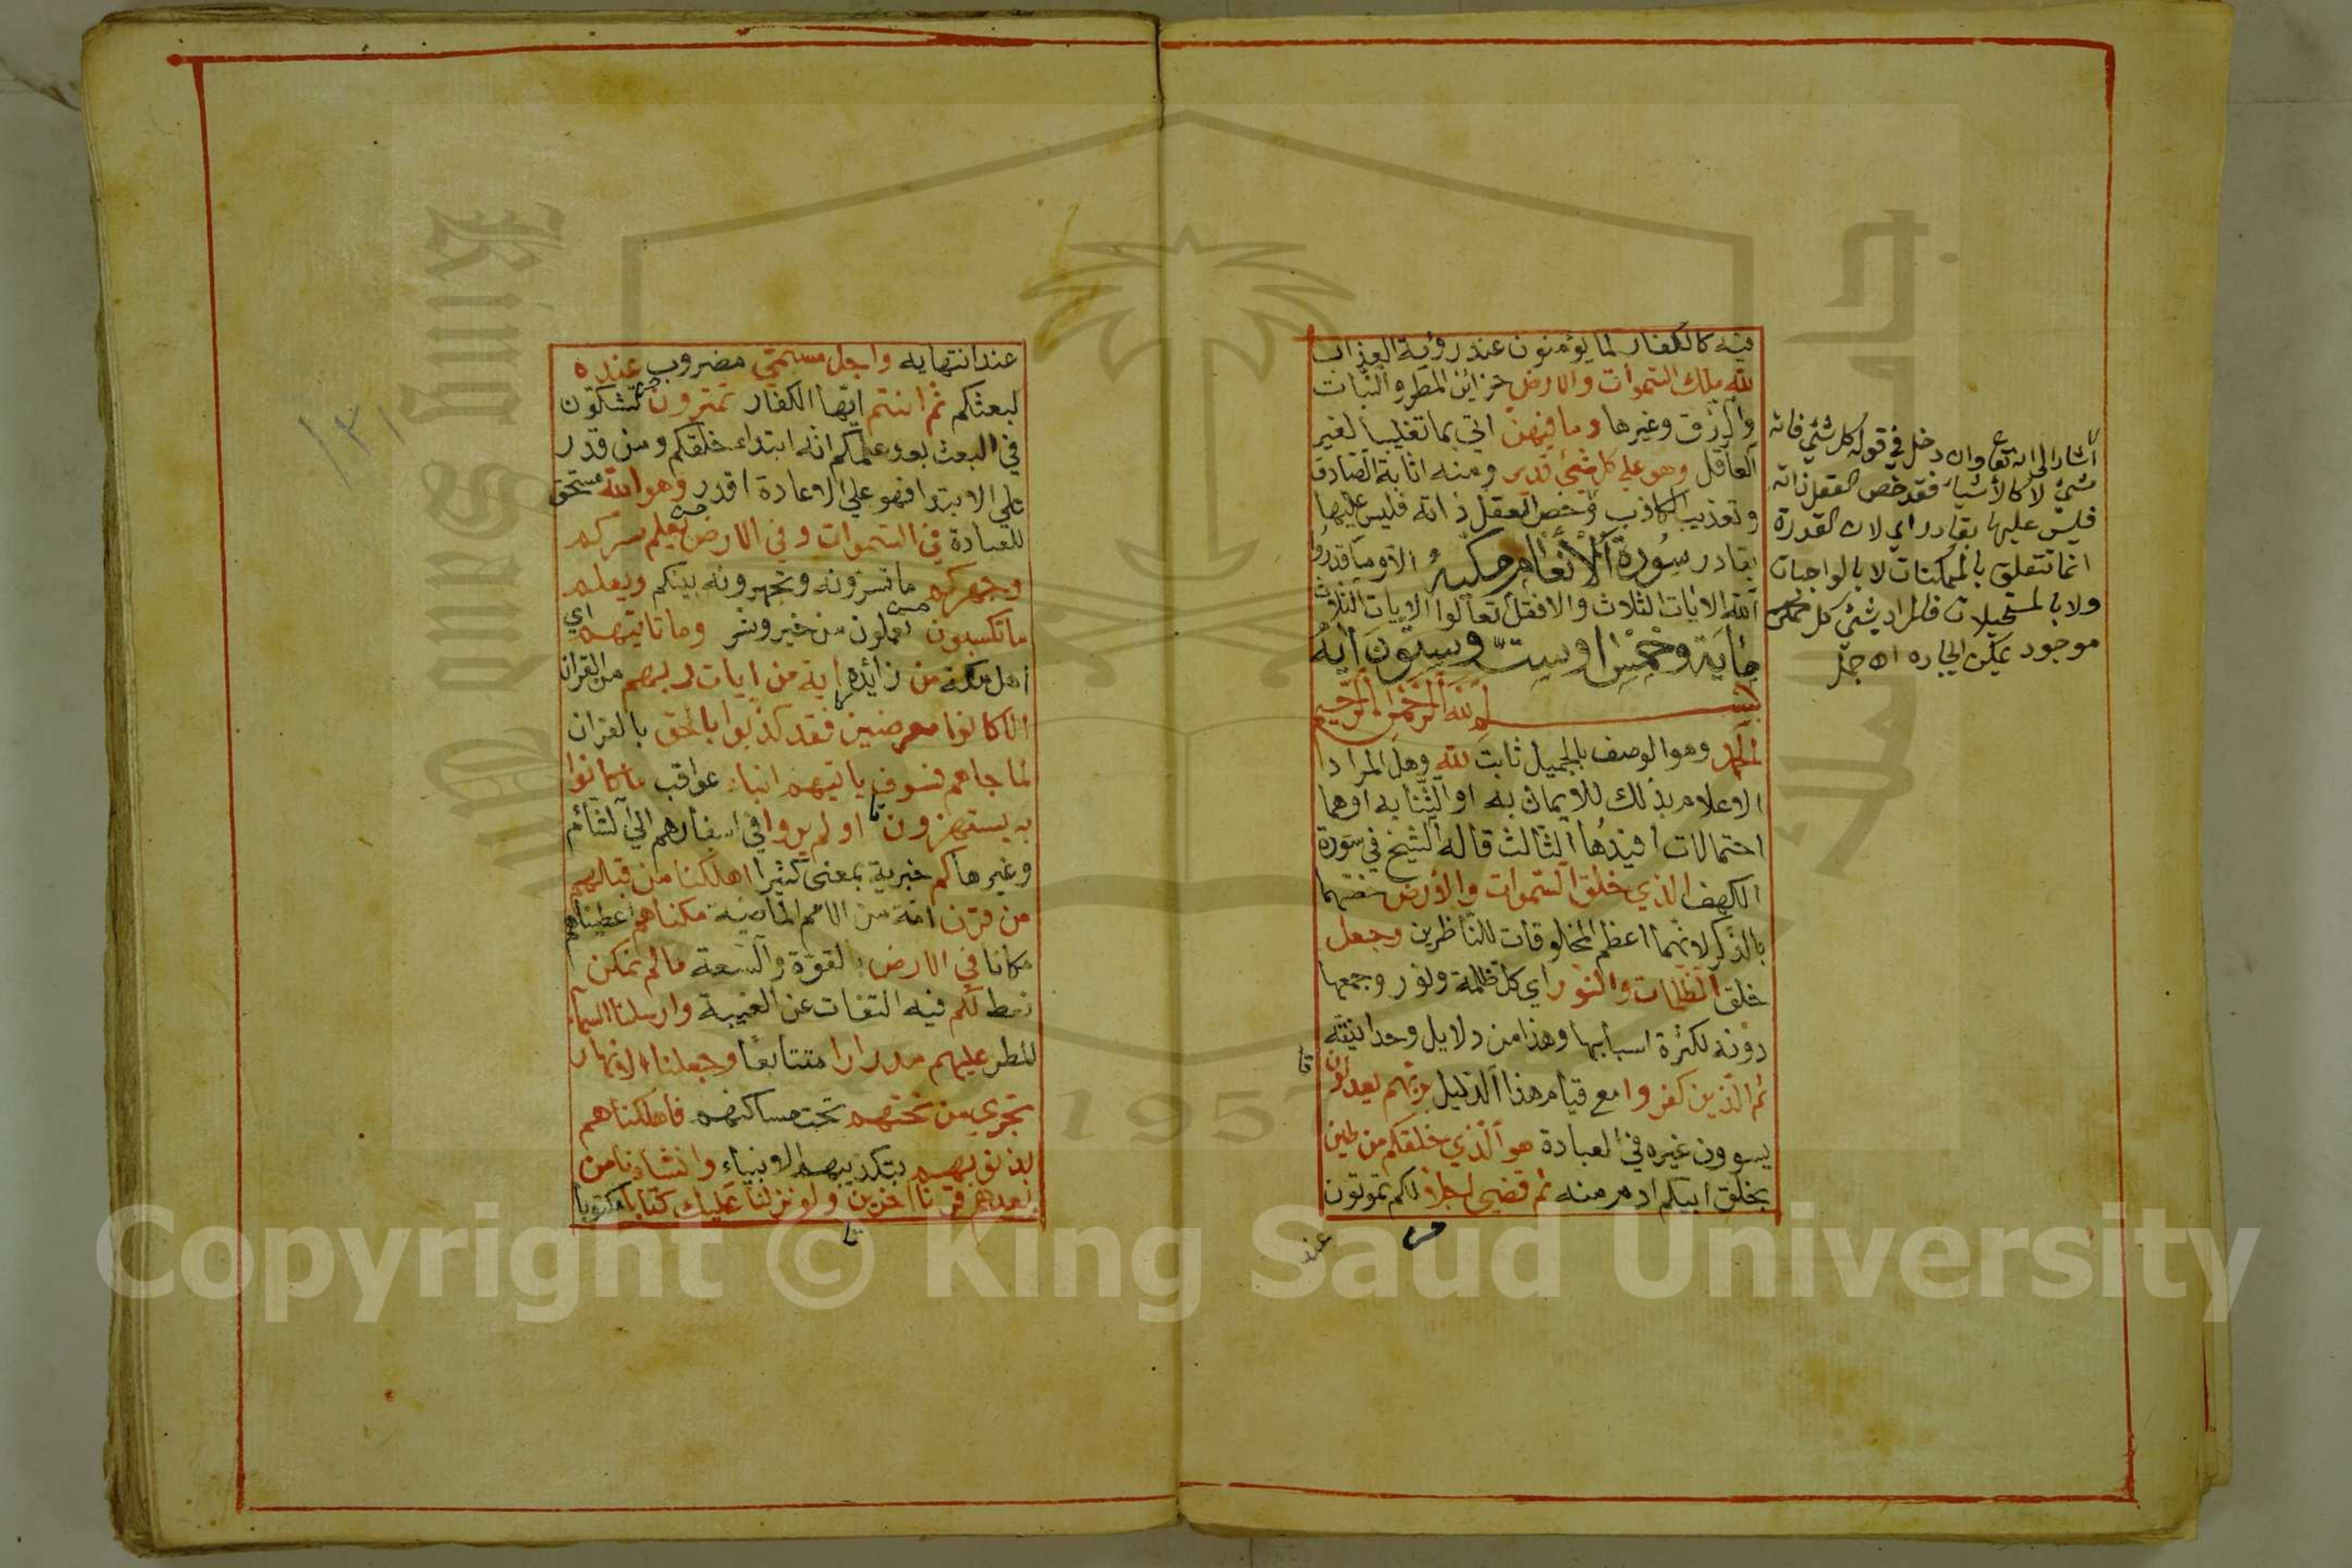 فيه كالكفار لما يؤمنون عند روية العذاب
لله ملك السموات والارض خزائن المطر والنبات
والرزق وغيرها وما فيهن اتي بما تغليبا لغير
العاقل وهو علي كل شيء قدير ومنه اثابة الصادق
وتعذيب الكاذب وخص العقل ذاته فليس عليها
بقادر سورة الأنعام مكية الا وما قدروا
الله الايات الثلاث والا قل تعالوا الايات الثلاث
ماية وخمس او ست وستون آية
بسم الله الرحمن الرحيم
الحمد وهو الوصف بالجميل ثابت لله وهل المراد
الاعلام بذلك للايمان به او الثنا به او هما
احتمالات افيدها الثالث قاله الشيخ في سورة
الكهف الذي خلق السموات والارض خصهما
بالذكر لانهما اعظم المخلوقات للناظرين وجعل
خلق الظلمات والنور اي كل ظلمة ونور وجمعها
دونه لكثرة اسبابها وهذا من دلايل وحدانيته
ثم الذين كفروا مع قيام هذا الدليل بربهم يعدلون
يسوون غيره في العبادة هو الذي خلقكم من طين
بخلق ابيكم ادم منه ثم قضي اجلا لكم تموتون
عند
اشار الى انه تعا وان دخل في قوله كل شيء فانه
شيء لا كالأشياء فقد خص العقل ذاته
فليس عليها بقادر اي لان القدرة
انما تتعلق بالممكنات لا بالواجبات
ولا بالمستحيلات فالمراد بشيء كل ممكن
موجود يمكن ايجاده اه جمل
عند انتهايه واجل مسمي مضروب عنده
لبعثكم ثم انتم ايها الكفار تمترون تشكون
في البعث بعد علمكم انه ابتداء خلقكم ومن قدر
علي الابتدا فهو علي الاعادة اقدر وهو الله مستحق
للعبادة في السموات وفي الارض يعلم سركم
وجهركم ما تسرونه وتجهرونه بينكم ويعلم
ما تكسبون تعملون من خير وشر وما تاتيهم اي
اهل مكة من زائدة اية من ايات ربهم من القران
الا كانوا معرضين فقد كذبوا بالحق بالقران
لما جاهم فسوف ياتيهم انباء عواقب ما كانوا
به يستهزون او لم يروا في اسفارهم الي الشأم
وغيرها كم خبرية بمعني كثيرا اهلكنا من قبلهم
من قرن امة من الامم الماضية مكناهم اعطيناهم
مكانا في الارض بالقوة والسعة ما لم نمكن
نعط لكم فيه التفات عن الغيبة وارسلنا السماء
المطر عليهم مدرارا متتابعا وجعلنا الانهار
تجري من تحتهم تحت مساكنهم فاهلكناهم
بذنوبهم بتكذيبهم الانبياء وانشانا من
بعدهم قرنا اخرين ولو نزلنا عليك كتابا مكتوبا
١٣١
1957
Copyright © King Saud University